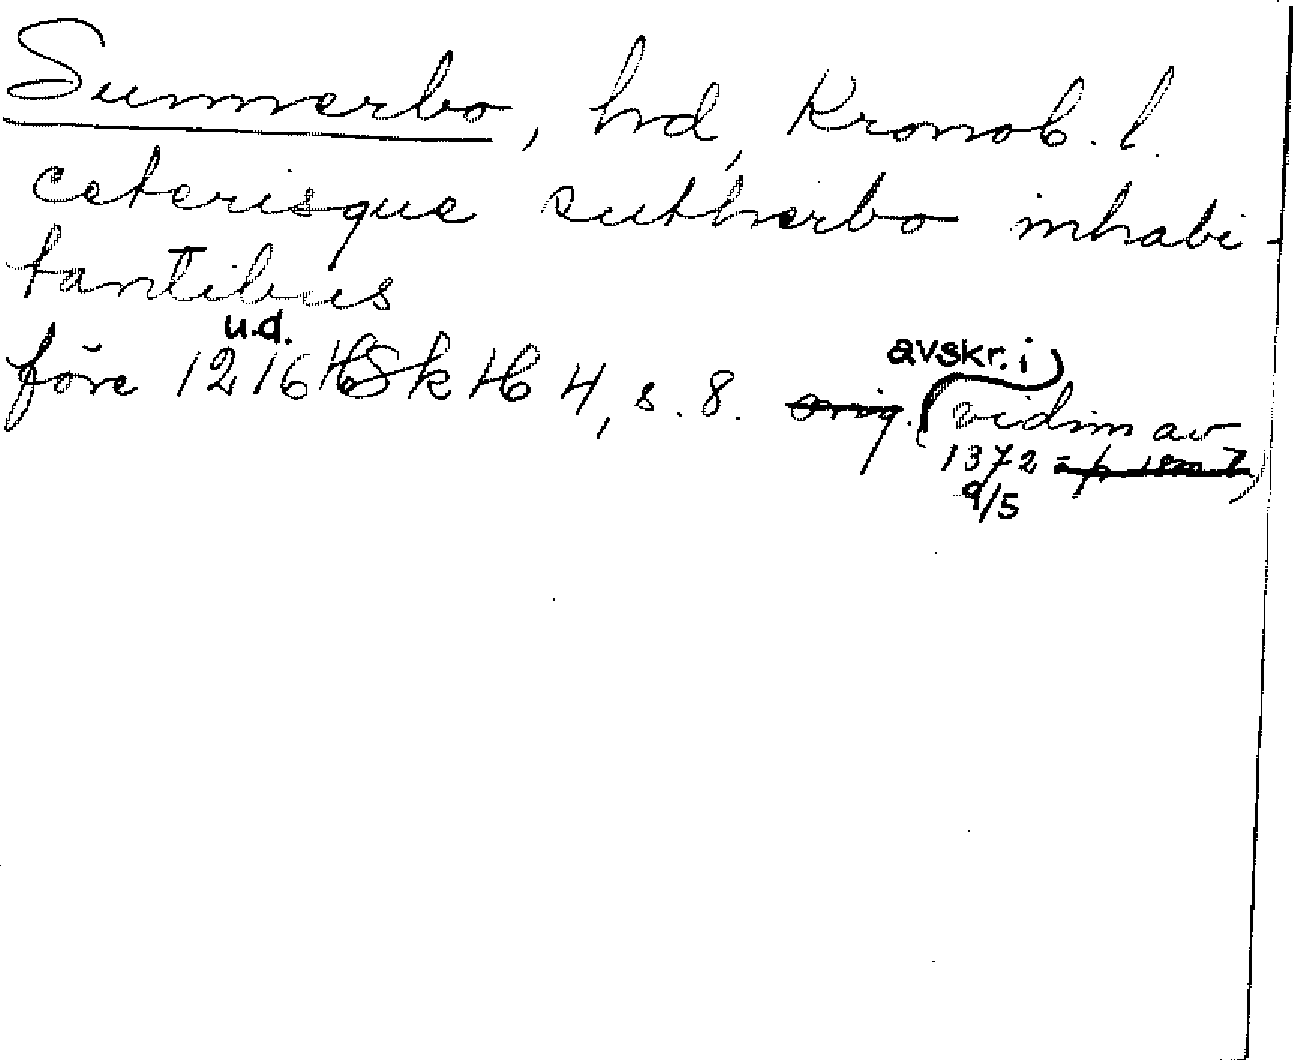 Sunnerbo, hd, Kronob. l.
ceterisque suthherbo inhabi-
tantibus
u.d.
före 1216 HSkH 4, s. 8. orig. (avskr. i) vidim av
1372
9/5